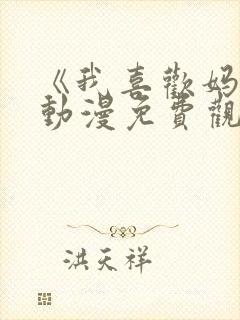 《我喜歡妈
動漫免費觀
洪天祥